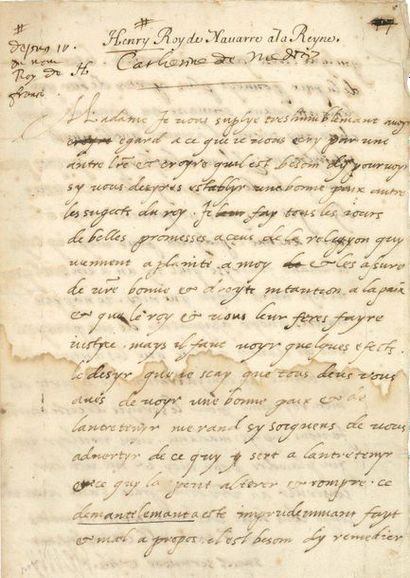 #
Henry Roy de Navarre a la Reyne.
#
depuis IV.
du nom
Roy de
france
H
Catherine de Medicis
Madame Je vous suplye tres humblemant avoyr
egard a ce que je vous ecry par une
autre lre et croyre quil est besoin dy pourvoyr
sy vous desyres establyr une bonne paix antre
les sugects du roy. Je leur fay tous les jours
de belles promesses a ceus de la relygyon quy
vienent a plainte a moy et les asure
de vre bonne et droyte intantion a la paix
et que le roy et vous leur feres fayre
justyce. mays il faut voyr quelques efects.
le desyr que je scay que tous deus vous
aves de voyr une bonne paix et de
lantretenyr me rand sy soigneus de vous
advertyr de ce quy sert a lantretenyr
et ce quy la peut alterer et rompre. ce
demantelemant a este imprudemmant fayt
et mal a propos. il est besoin dy remedier